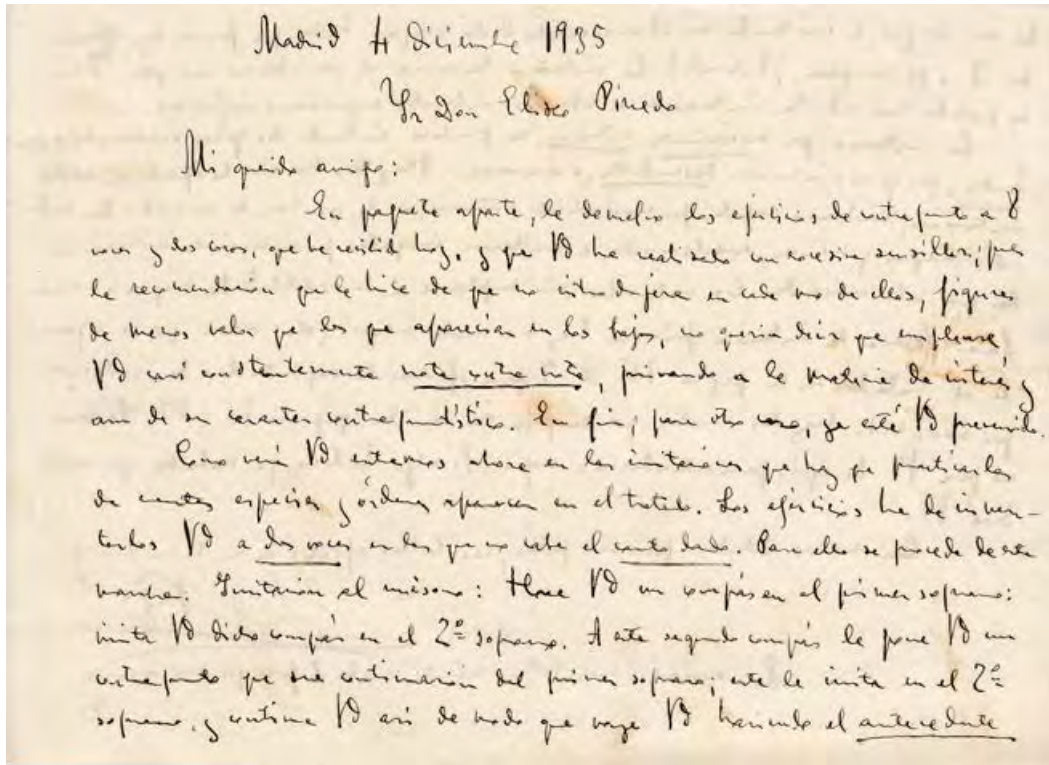 Madrid 4 diciembre 1935
Sr Don Eliseo Pinedo
Mi querido amigo:
En paquete aparte, le devuelvo los ejercicios de contrapunto a 8
voces y dos coros, que he recibido hoy, y que Vd ha realizado con excesiva sencillez; pues
la recomendación que le hice de que no introdujera en cada uno de ellos, figuras
de menos valor que las que aparecían en los bajos, no quería decir que emplease
Vd casi constantemente nota contra nota, privando a la música de interés y
aun de su caracter contrapuntístico. En fin; para otro caso, ya está Vd prevenido.
Como verá Vd entramos ahora en las imitaciones que hay que practicarlas
de cuantas especies y órdenes aparecen en el tratado. Los ejercicios ha de inven-
tarlos Vd a dos voces en los que no cabe el canto dado. Para ello se procede de esta
manera. Imitación al unísono: Hace Vd un compás en el primer soprano:
imita Vd dicho compás en el 2º soprano. A este segundo compás le pone Vd un
contrapunto que sea continuación del primer soprano; este le imita en el 2º
soprano, y continua Vd así de modo que vaya Vd haciendo el antecedente